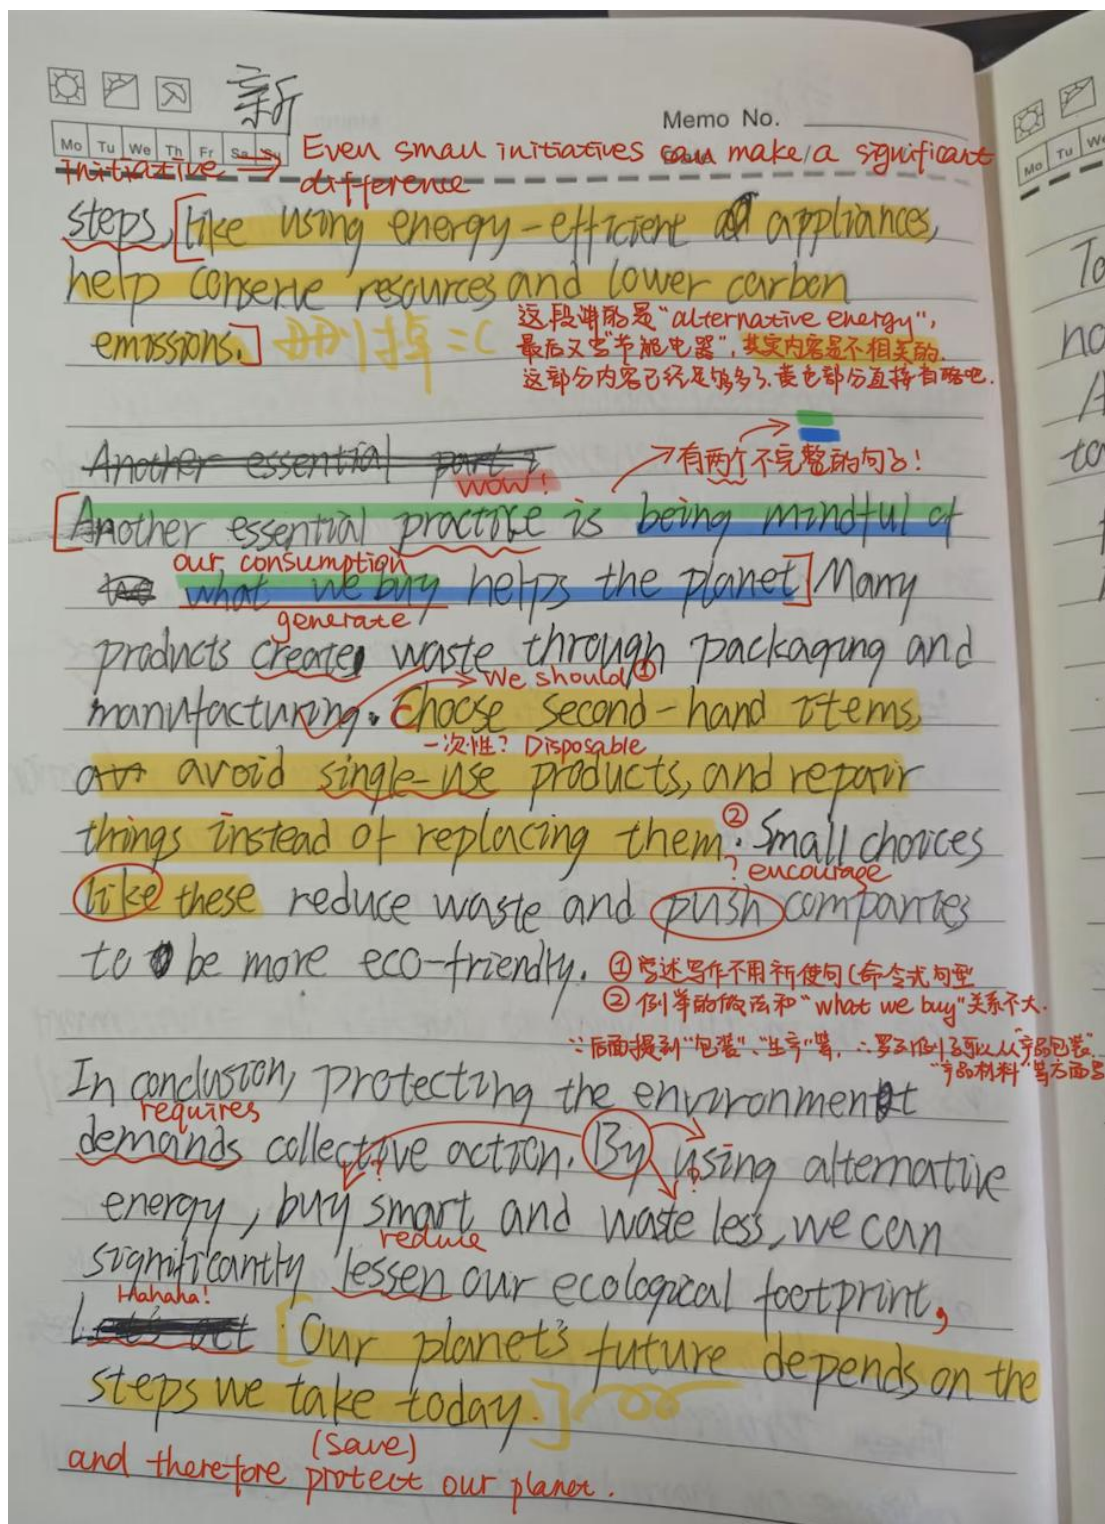 新
Memo No.
Mo Tu We Th Fr Sa Su
initiative → Even small initiatives can make a significant
difference
steps, [like using energy-efficient appliances,
help conserve resources and lower carbon
emissions.] 删掉 =(
这段讲的是"alternative energy",
最后又写"节能电器",其实内容是不相关的.
这部分内容已经足够多了,黄色部分直接省略吧.
Another essential part i
→有两个不完整的句子!
wow!
[Another essential practice is being mindful of
our consumption
what we buy helps the planet] Many
generate
products create waste through packaging and
We should ①
manufacturing. Choose second-hand items,
一次性? Disposable
avoid single-use products, and repair
things instead of replacing them. ② Small choices
? encourage
like these reduce waste and push companies
to be more eco-friendly.
① 写述写作不用祈使句(命令式句型
② 例举的做法和"what we buy"关系不大.
∵后面提到"包装"、"生产"等, ∴罗列例子可以从"产品包装"
"产品材料"等方面写
In conclusion, protecting the environment
requires
demands collective action. By using alternative
? ?
energy, buy smart and waste less, we can
reduce
significantly lessen our ecological footprint,
Hahaha!
Let's act [Our planet's future depends on the
steps we take today.]
(save)
and therefore protect our planet.
Mo Tu We
To
no
A
to